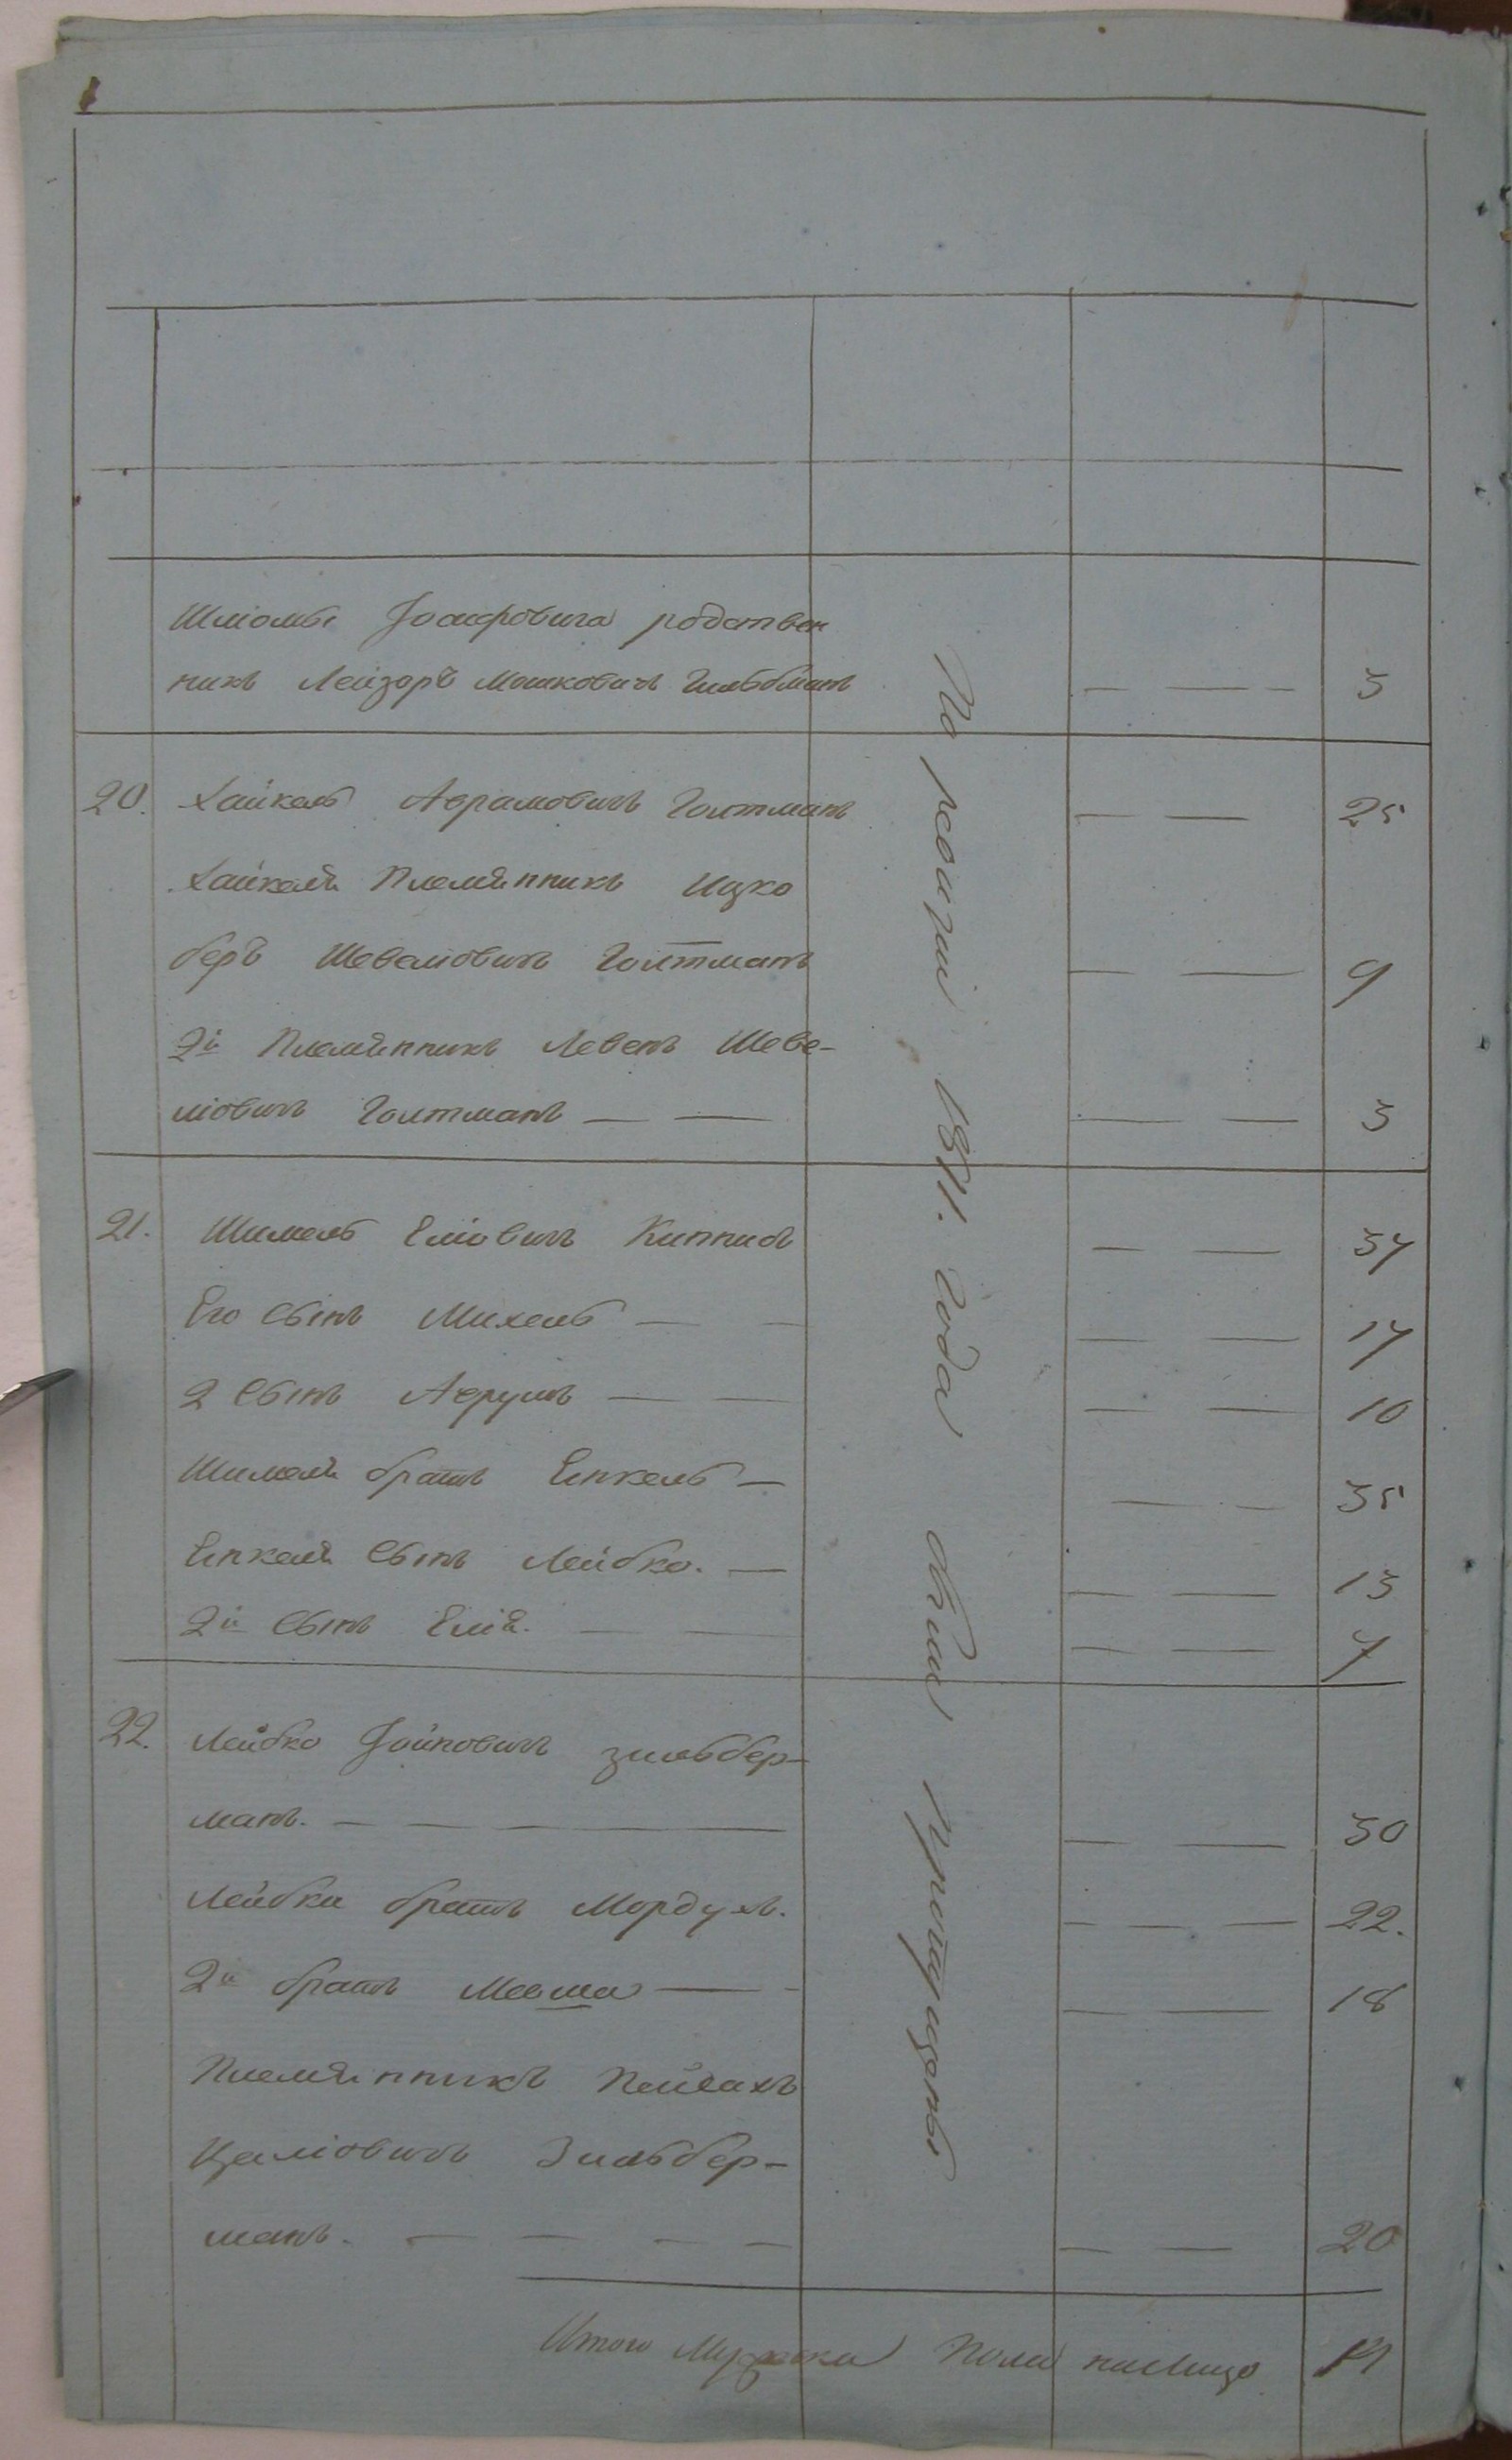 Шліомы Іосифовича родствен
никъ Лейзоръ Мошковичъ Гильбманъ — — — 3
20. Хайкель Аврамовичъ Голтманъ — — 25
Хайкеля Племянникъ Ицко
беръ Шевелıовичъ Голтманъ — — 9
2й Племянникъ Левенъ Шеве-
ліовичъ Голтманъ — — — — 3
21. Шимель Еліовичъ Кипписъ — — 34
Его сынъ Михель — — — — 14
2 сынъ Аврумъ — — — — 10
Шимеля братъ Енкель — — — 35
Енкеля сынъ Лейбко. — — — 13
2й сынъ Еліа. — — — — 4
22. Лейбко Іойновичъ Зильбер-
манъ. — — — — — — 30
Лейбки братъ Мордухъ. — — — 22.
2й братъ Мовша — — — — 18
Племянникъ Пейсахъ
Целіовичъ Зильбер-
манъ. — — — — — — 20
По ревизіи 1811. года были пропущены
Итого Мужеска Пола налицо 14